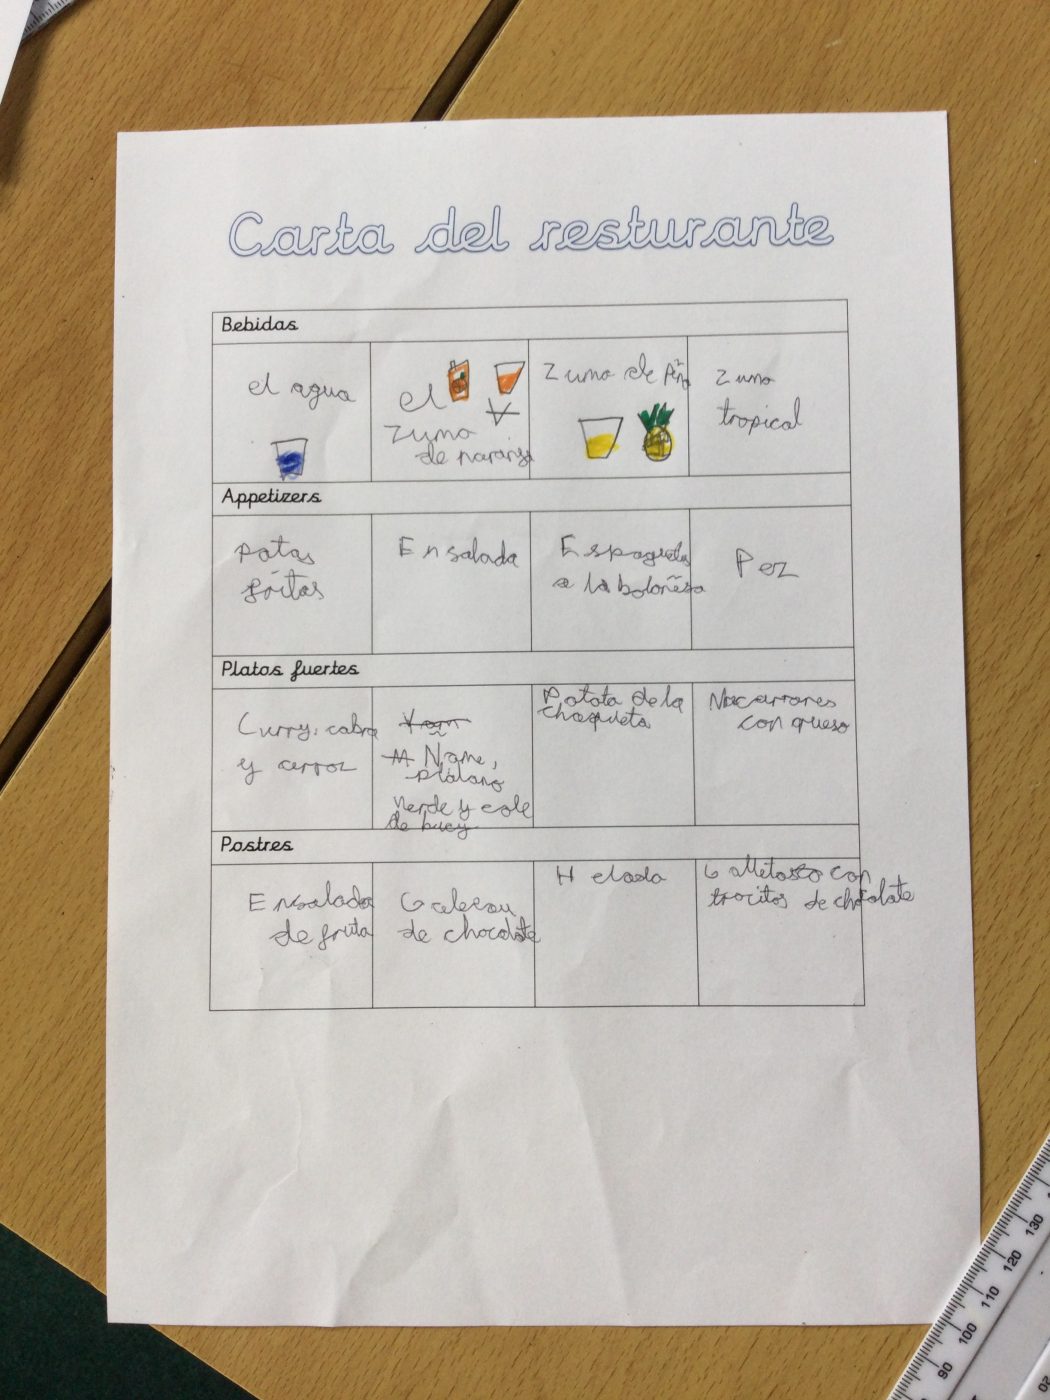 Carta del resturante
Bebidas
el agua
el
zumo
de naranja
Zumo de Piña
Zumo
tropical
Appetizers
Patas
fritas
Ensalada
Espaguetis
a la boloñesa
Pez
Platos fuertes
Curry, cabra
y arroz
Yam
Ñame,
plátano
verde y cole
de buey
Patata de la
chaqueta
Macarrones
con queso
Postres
Ensalada
de fruta
de chocolate
Helado
con
trocitos de chocolate
90
100
110
120
130